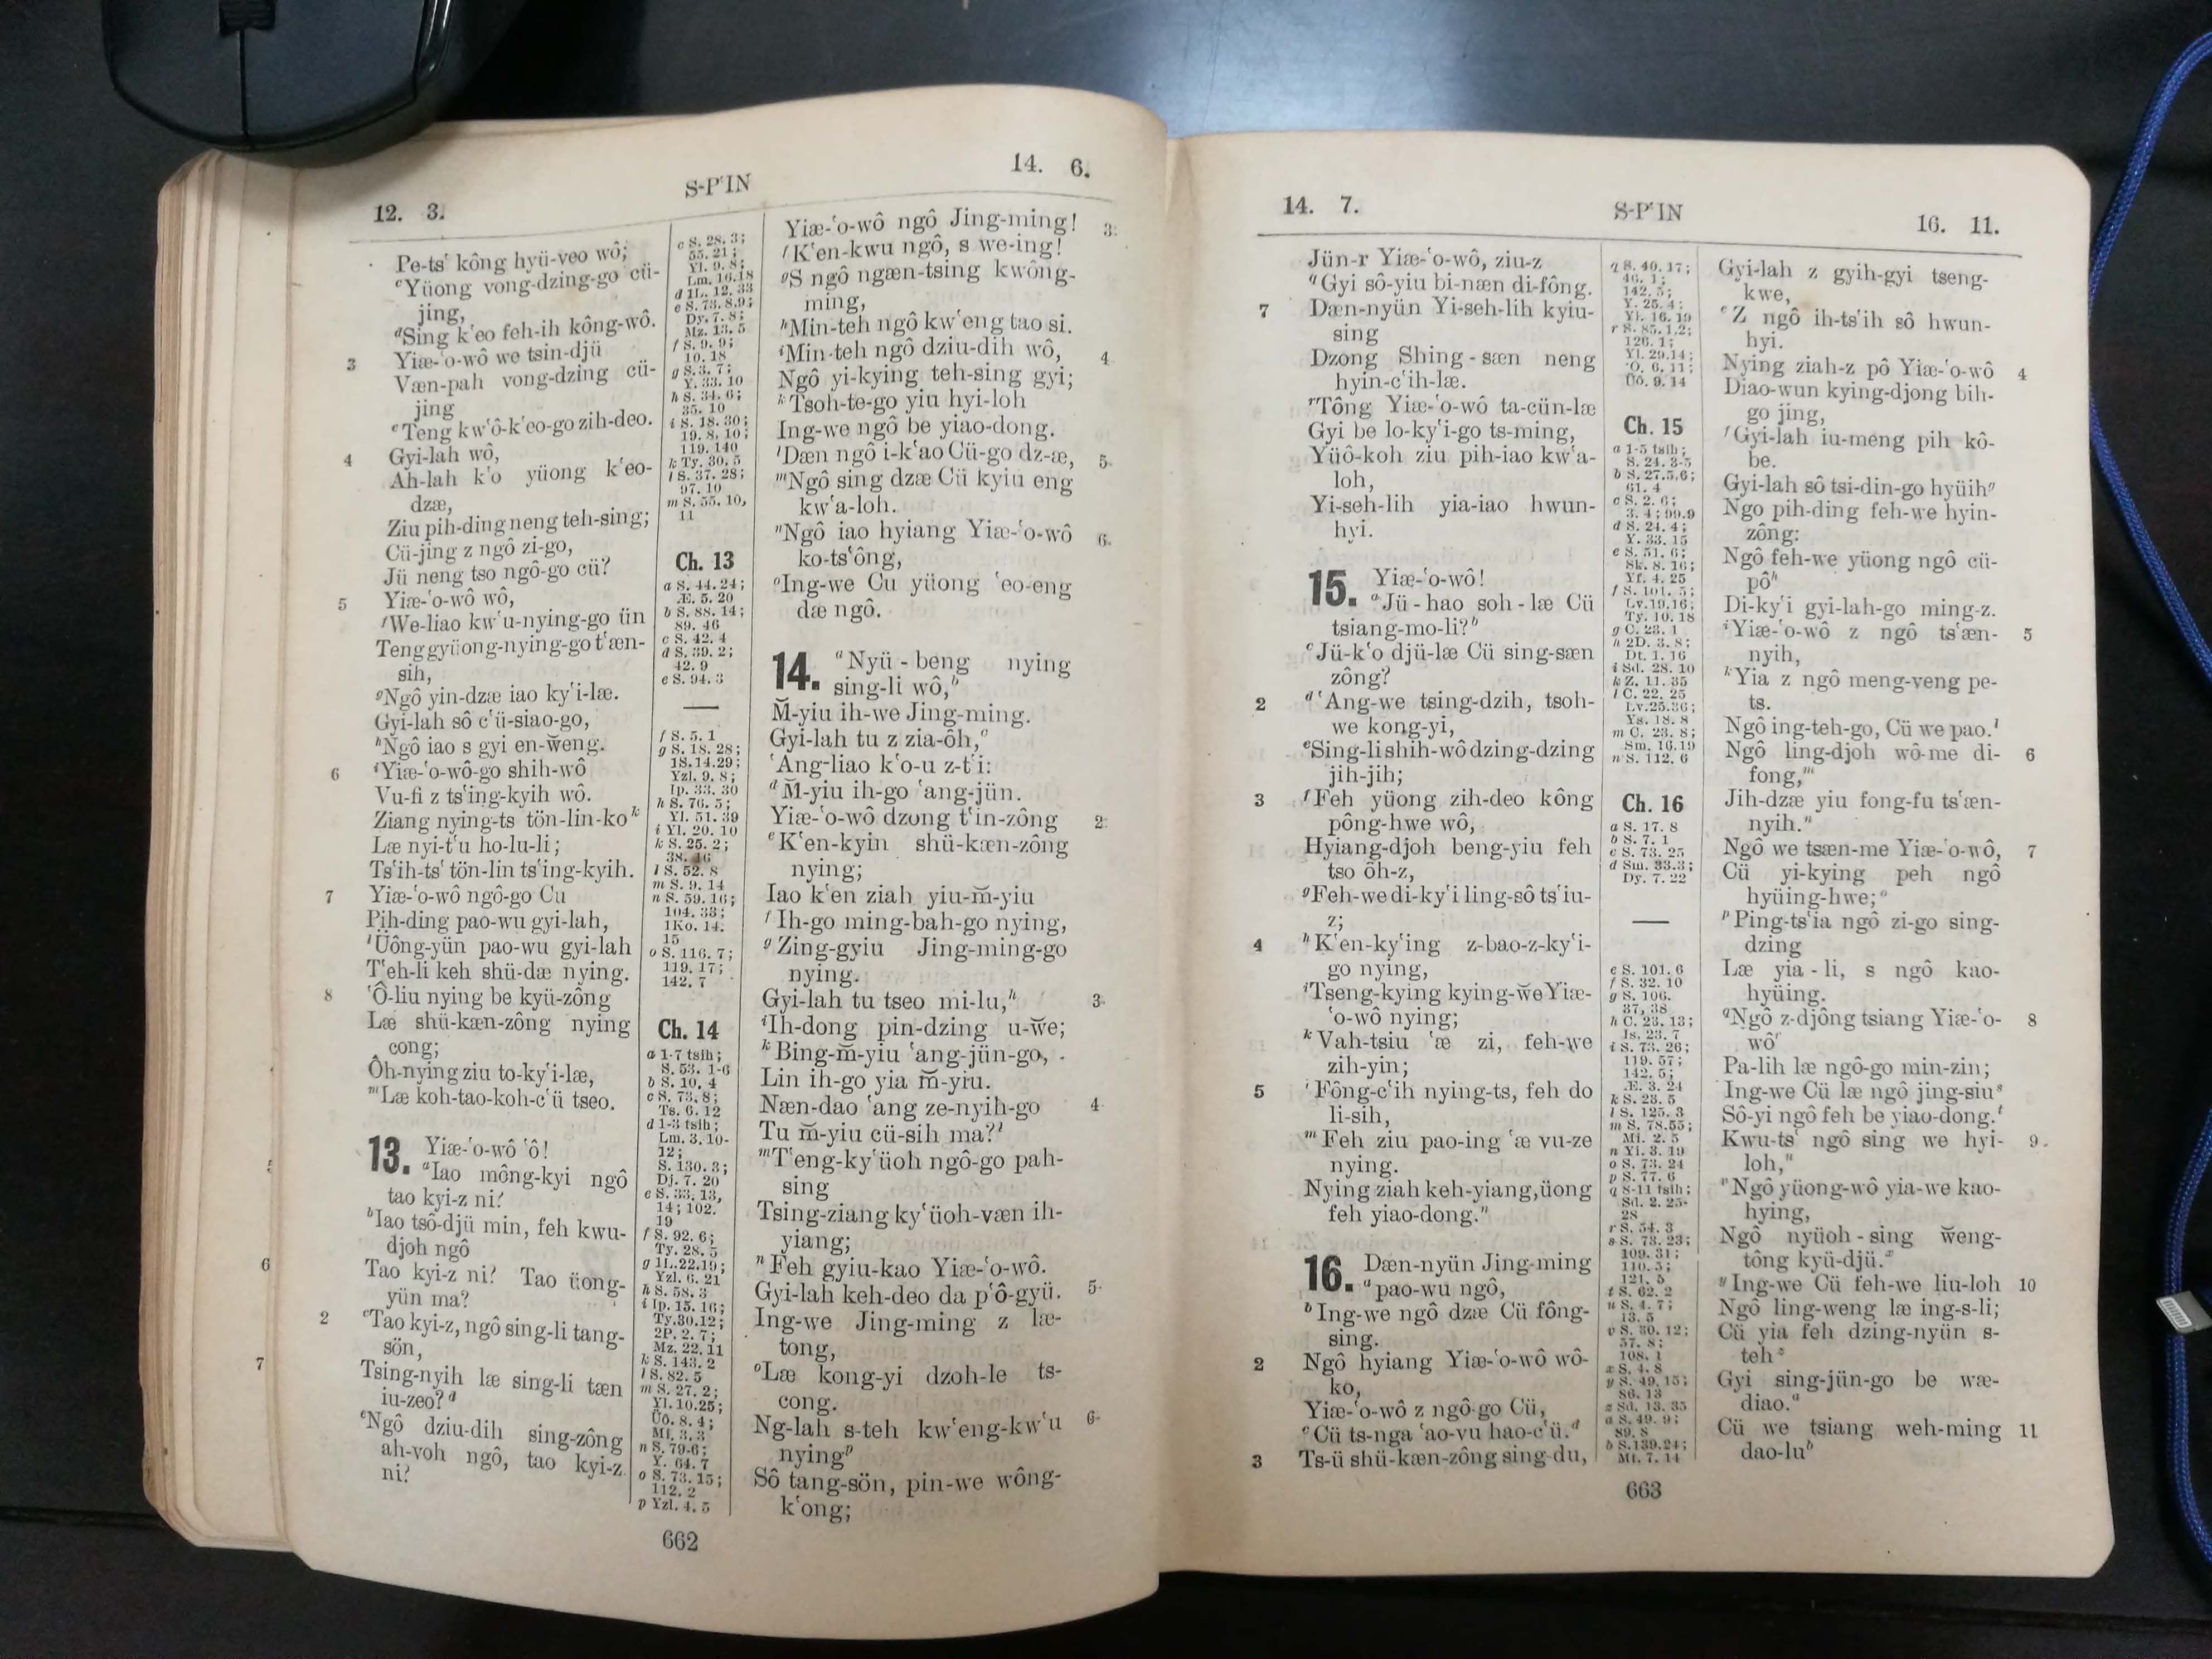 12. 3.
S-P'IN
14. 6.
Pe-ts' kông hyü-veo wô;
cYüong vong-dzing-go cü-
jing,
dSing k'eo feh-ih kông-wô.
3 Yiæ-'o-wô we tsin-djü
Væn-pah vong-dzing cü-
jing
eTeng kw'ô-k'eo-go zih-deo.
4 Gyi-lah wô,
Ah-lah k'o yüong k'eo-
dzæ,
Ziu pih-ding neng teh-sing;
Cü-jing z ngô zi-go,
Jü neng tso ngô-go cü?
5 Yiæ-'o-wô wô,
fWe-liao kw'u-nying-go ün
Teng gyüong-nying-go t'æn-
sih,
gNgô yin-dzæ iao ky'i-læ.
Gyi-lah sô c'ü-siao-go,
hNgô iao s gyi en-w̆eng.
6 iYiæ-'o-wô-go shih-wô
Vu-fi z ts'ing-kyih wô.
Ziang nying-ts tön-lin-ko k
Læ nyi-t'u ho-lu-li;
Ts'ih-ts' tön-lin ts'ing-kyih.
7 Yiæ-'o-wô ngô-go Cu
Pih-ding pao-wu gyi-lah,
lÜông-yün pao-wu gyi-lah
T'eh-li keh shü-dæ nying.
8 'Ô-liu nying be kyü-zông
Læ shü-kæn-zông nying
cong;
Ôh-nying ziu to-ky'i-læ,
mLæ koh-tao-koh-c'ü tseo.
13. Yiæ-'o-wô 'ô!
aIao mông-kyi ngô
tao kyi-z ni?
bIao tsô-djü min, feh kwu-
djoh ngô
Tao kyi-z ni? Tao üong-
yün ma?
2 cTao kyi-z, ngô sing-li tang-
sön,
Tsing-nyih læ sing-li tæn
iu-zeo? d
eNgô dziu-dih sing-zông
ah-voh ngô, tao kyi-z
ni?
c S. 28. 3;
55. 21;
Yl. 9. 8;
Lm. 16.18
d 1L. 12. 33
e S. 73. 8.9;
Dy. 7. 8;
Mz. 13. 5
f S. 9. 9;
10. 18
g S. 3. 7;
Y. 33. 10
h S. 34. 6;
35. 10
i S. 18. 30;
19. 8, 10;
119. 140
k Ty. 30. 5
l S. 37. 28;
97. 10
m S. 55. 10,
11
Ch. 13
a S. 44. 24;
Æ. 5. 20
b S. 88. 14;
89. 46
c S. 42. 4
d S. 39. 2;
42. 9
e S. 94. 3
f S. 5. 1
g S. 18. 28;
18.14.29;
Yzl. 9. 8;
Ip. 33. 30
h S. 76. 5;
Yl. 51. 39
i Yl. 20. 10
k S. 25. 2;
38. 16
l S. 52. 8
m S. 9. 14
n S. 59. 16;
104. 33;
1Ko. 14.
15
o S. 116. 7;
119. 17;
142. 7
Ch. 14
a 1-7 tsih;
S. 53. 1-6
b S. 10. 4
c S. 73. 8;
Ts. 6. 12
d 1-3 tsih;
Lm. 3. 10-
12;
S. 130. 3;
Dj. 7. 20
e S. 33. 13,
14; 102.
19
f S. 92. 6;
Ty. 28. 5
g 1L.22.19;
Yzl. 6. 21
h S. 58. 3
i Ip. 15. 16;
Ty.30.12;
2P. 2. 7;
Mz. 22. 11
k S. 143. 2
l S. 82. 5
m S. 27. 2;
Yl. 10.25;
Üô. 8. 4;
Mi. 3. 3
n S. 79-6;
Y. 64. 7
o S. 73. 15;
112. 2
p Yzl. 4. 5
Yiæ-'o-wô ngô Jing-ming! 3
fK'en-kwu ngô, s we-ing!
gS ngô ngæn-tsing kwông-
ming,
hMin-teh ngô kw'eng tao si.
iMin-teh ngô dziu-dih wô, 4
Ngô yi-kying teh-sing gyi;
kTsoh-te-go yiu hyi-loh
Ing-we ngô be yiao-dong.
lDæn ngô i-k'ao Cü-go dz-æ, 5
mNgô sing dzæ Cü kyiu eng
kw'a-loh.
nNgô iao hyiang Yiæ-'o-wô 6
ko-ts'ông,
oIng-we Cu yüong 'eo-eng
dæ ngô.
14. aNyü-beng nying
sing-li wô,b
M̆-yiu ih-we Jing-ming.
Gyi-lah tu z zia-ôh,c
'Ang-liao k'o-u z-t'i:
dM̆-yiu ih-go 'ang-jün.
Yiæ-'o-wô dzong t'in-zông 2
eK'en-kyin shü-kæn-zông
nying;
Iao k'en ziah yiu-m̆-yiu
fIh-go ming-bah-go nying,
gZing-gyiu Jing-ming-go
nying.
Gyi-lah tu tseo mi-lu,h 3
iIh-dong pin-dzing u-w̆e;
kBing-m̆-yiu 'ang-jün-go,
Lin ih-go yia m̆-yiu.
Næn-dao 'ang ze-nyih-go 4
Tu m̆-yiu cü-sih ma?l
mT'eng-ky'üoh ngô-go pah-
sing
Tsing-ziang ky'üoh-væn ih-
yiang;
nFeh gyiu-kao Yiæ-'o-wô.
Gyi-lah keh-deo da p'ô-gyü. 5
Ing-we Jing-ming z læ-
tong,
oLæ kong-yi dzoh-le ts-
cong.
Ng-lah s-teh kw'eng-kw'u 6
nying p
Sô tang-sön, pin-we wông-
k'ong;
662
14. 7.
S-P'IN
16. 11.
Jün-r Yiæ-'o-wô, ziu-z
qGyi sô-yiu bi-næn di-fông.
7 Dæn-nyün Yi-seh-lih kyiu-
sing
Dzong Shing-sæn neng
hyin-c'ih-læ.
rTông Yiæ-'o-wô ta-cün-læ
Gyi be lo-ky'i-go ts-ming,
Yüô-koh ziu pih-iao kw'a-
loh,
Yi-seh-lih yia-iao hwun-
hyi.
15. Yiæ-'o-wô!
aJü-hao soh-læ Cü
tsiang-mo-li? b
cJü-k'o djü-læ Cü sing-sæn
zông?
2 d'Ang-we tsing-dzih, tsoh-
we kong-yi,
eSing-li shih-wô dzing-dzing
jih-jih;
3 fFeh yüong zih-deo kông
pông-hwe wô,
Hyiang-djoh beng-yiu feh
tso ôh-z,
gFeh-we di-ky'i ling-sô ts'iu-
z;
4 hK'en-ky'ing z-bao-z-ky'i-
go nying,
iTseng-kying kying-w̆e Yiæ-
'o-wô nying;
kVah-tsiu 'æ zi, feh-we
zih-yin;
5 lFông-c'ih nying-ts, feh do
li-sih,
mFeh ziu pao-ing 'æ vu-ze
nying.
Nying ziah keh-yiang, üong
feh yiao-dong.n
16. Dæn-nyün Jing-ming
apao-wu ngô,
bIng-we ngô dzæ Cü fông-
sing.
2 Ngô hyiang Yiæ-'o-wô wô-
ko,
Yiæ-'o-wô z ngô-go Cü,
cCü ts-nga 'ao-vu hao-c'ü.d
3 Ts-ü shü-kæn-zông sing-du,
q S. 40. 17;
46. 1;
142. 5;
Y. 25. 4;
Yl. 16. 19
r S. 85. 1.2;
126. 1;
Yl. 29.14;
'O. 6. 11;
Üô. 9. 14
Ch. 15
a 1-5 tsih;
S. 24. 3-5
b S. 27.5,6;
61. 4
c S. 2. 6;
3. 4; 99.9
d S. 24. 4;
Y. 33. 15
e S. 51. 6;
Sk. 8. 16;
Yf. 4. 25
f S. 101. 5;
Lv.19.16;
Ty. 10. 18
g C. 23. 1
h 2D. 3. 8;
Dt. 1. 16
i Sd. 28. 10
k Z. 11. 35
l C. 22. 25
Lv.25.36;
Ys. 18. 8
m C. 23. 8;
Sm. 16.19
n S. 112. 6
Ch. 16
a S. 17. 8
b S. 7. 1
c S. 73. 25
d Sm. 33.3;
Dy. 7. 22
e S. 101. 6
f S. 32. 10
g S. 106.
37, 38
h C. 23. 13;
Js. 23. 7
i S. 73. 26;
119. 57;
142. 5;
Æ. 3. 24
k S. 23. 5
l S. 125. 3
m S. 78.55;
Mi. 2. 5
n Yi. 3. 19
o S. 73. 24
p S. 77. 6
q 8-11 tsih;
Sd. 2. 25-
28
r S. 54. 3
s S. 73. 23;
109. 31;
110. 5;
121. 5
t S. 62. 2
u S. 4. 7;
13. 5
v S. 30. 12;
57. 8;
108. 1
x S. 4. 8
y S. 49. 15;
86. 13
z Sd. 13. 35
a S. 49. 9;
89. 8
b S.139.24;
Mt. 7. 14
Gyi-lah z gyih-gyi tseng-
kwe,
eZ ngô ih-ts'ih sô hwun-
hyi.
Nying ziah-z pô Yiæ-'o-wô 4
Diao-wun kying-djong bih-
go jing,
fGyi-lah iu-meng pih kô-
be.
Gyi-lah sô tsi-din-go hyüih g
Ngo pih-ding feh-we hyin-
zông:
Ngô feh-we yüong ngô cü-
pô h
Di-ky'i gyi-lah-go ming-z.
iYiæ-'o-wô z ngô ts'æn- 5
nyih,
kYia z ngô meng-veng pe-
ts.
Ngô ing-teh-go, Cü we pao.l
Ngô ling-djoh wô-me di- 6
fong,m
Jih-dzæ yiu fong-fu ts'æn-
nyih.n
Ngô we tsæn-me Yiæ-'o-wô, 7
Cü yi-kying peh ngô
hyüing-hwe;o
pPing-ts'ia ngô zi-go sing-
dzing
Læ yia-li, s ngô kao-
hyüing.
qNgô z-djông tsiang Yiæ-'o- 8
wô r
Pa-lih læ ngô-go min-zin;
Ing-we Cü læ ngô jing-siu s
Sô-yi ngô feh be yiao-dong.t
Kwu-ts' ngô sing we hyi- 9
loh,u
vNgô yüong-wô yia-we kao-
hying,
Ngô nyüoh-sing w̆eng-
tông kyü-djü.x
yIng-we Cü feh-we liu-loh 10
Ngô ling-weng læ ing-s-li;
Cü yia feh dzing-nyün s-
teh z
Gyi sing-jün-go be wæ-
diao.a
Cü we tsiang weh-ming 11
dao-lu b
663